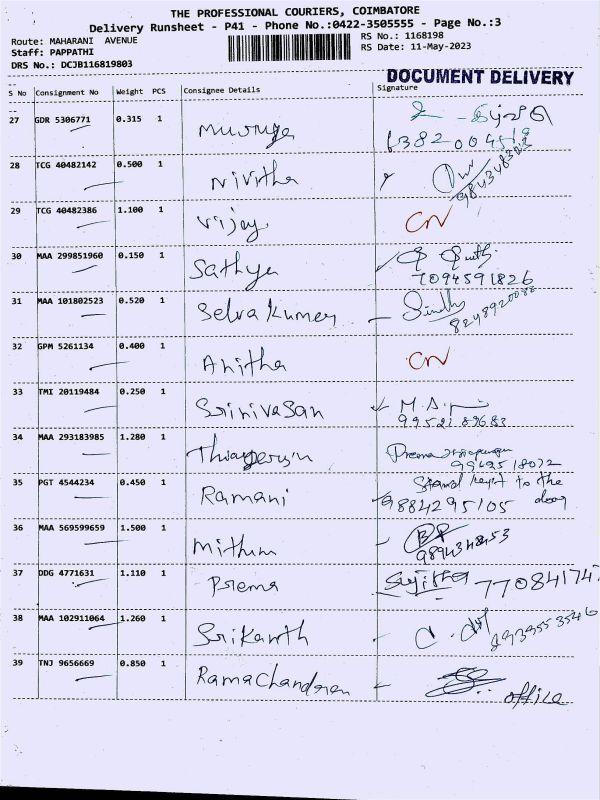 THE PROFESSIONAL COURIERS, COIMBATORE
Delivery Runsheet - P41 - Phone No.:0422-3505555 - Page No.:3
Route: MAHARANI AVENUE
Staff: PAPPATHI
DRS No.: DCJB116819803
RS No.: 1168198
RS Date: 11-May-2023
DOCUMENT DELIVERY
S No Consignment No Weight PCS Consignee Details Signature
27 GDR 5306771 0.315 1 Muruga
6382004519
28 TCG 40482142 0.500 1 Nivitha
29 TCG 40482386 1.100 1 Vijay CN
30 MAA 299851960 0.150 1 Sathya
7094591826
31 MAA 101802523 0.520 1 Selva Kumar Sindhu
8248920082
32 GPM 5261134 0.400 1 Anitha CN
33 TMI 20119484 0.250 1 Srinivasan M.A.
9952189683
34 MAA 293183985 1.280 1 Prema
35 PGT 4544234 0.450 1 Ramani to the
9884295105 door
36 MAA 569599659 1.500 1 Mithun
9894348453
37 DDG 4771631 1.110 1 Prema Sujitha 770841747
38 MAA 102911064 1.260 1 Srikanth
8939553546
39 TNJ 9656669 0.850 1 Ramachandran office